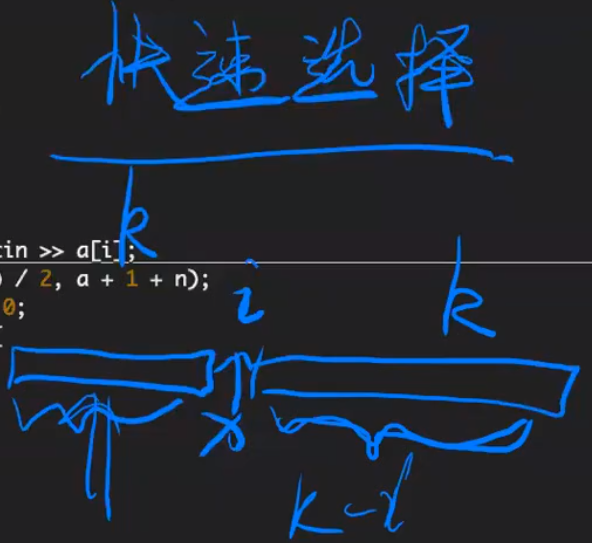 快速选择
k
tin >> a[i];
) / 2, a + 1 + n);
0;
i
k
x
k-i